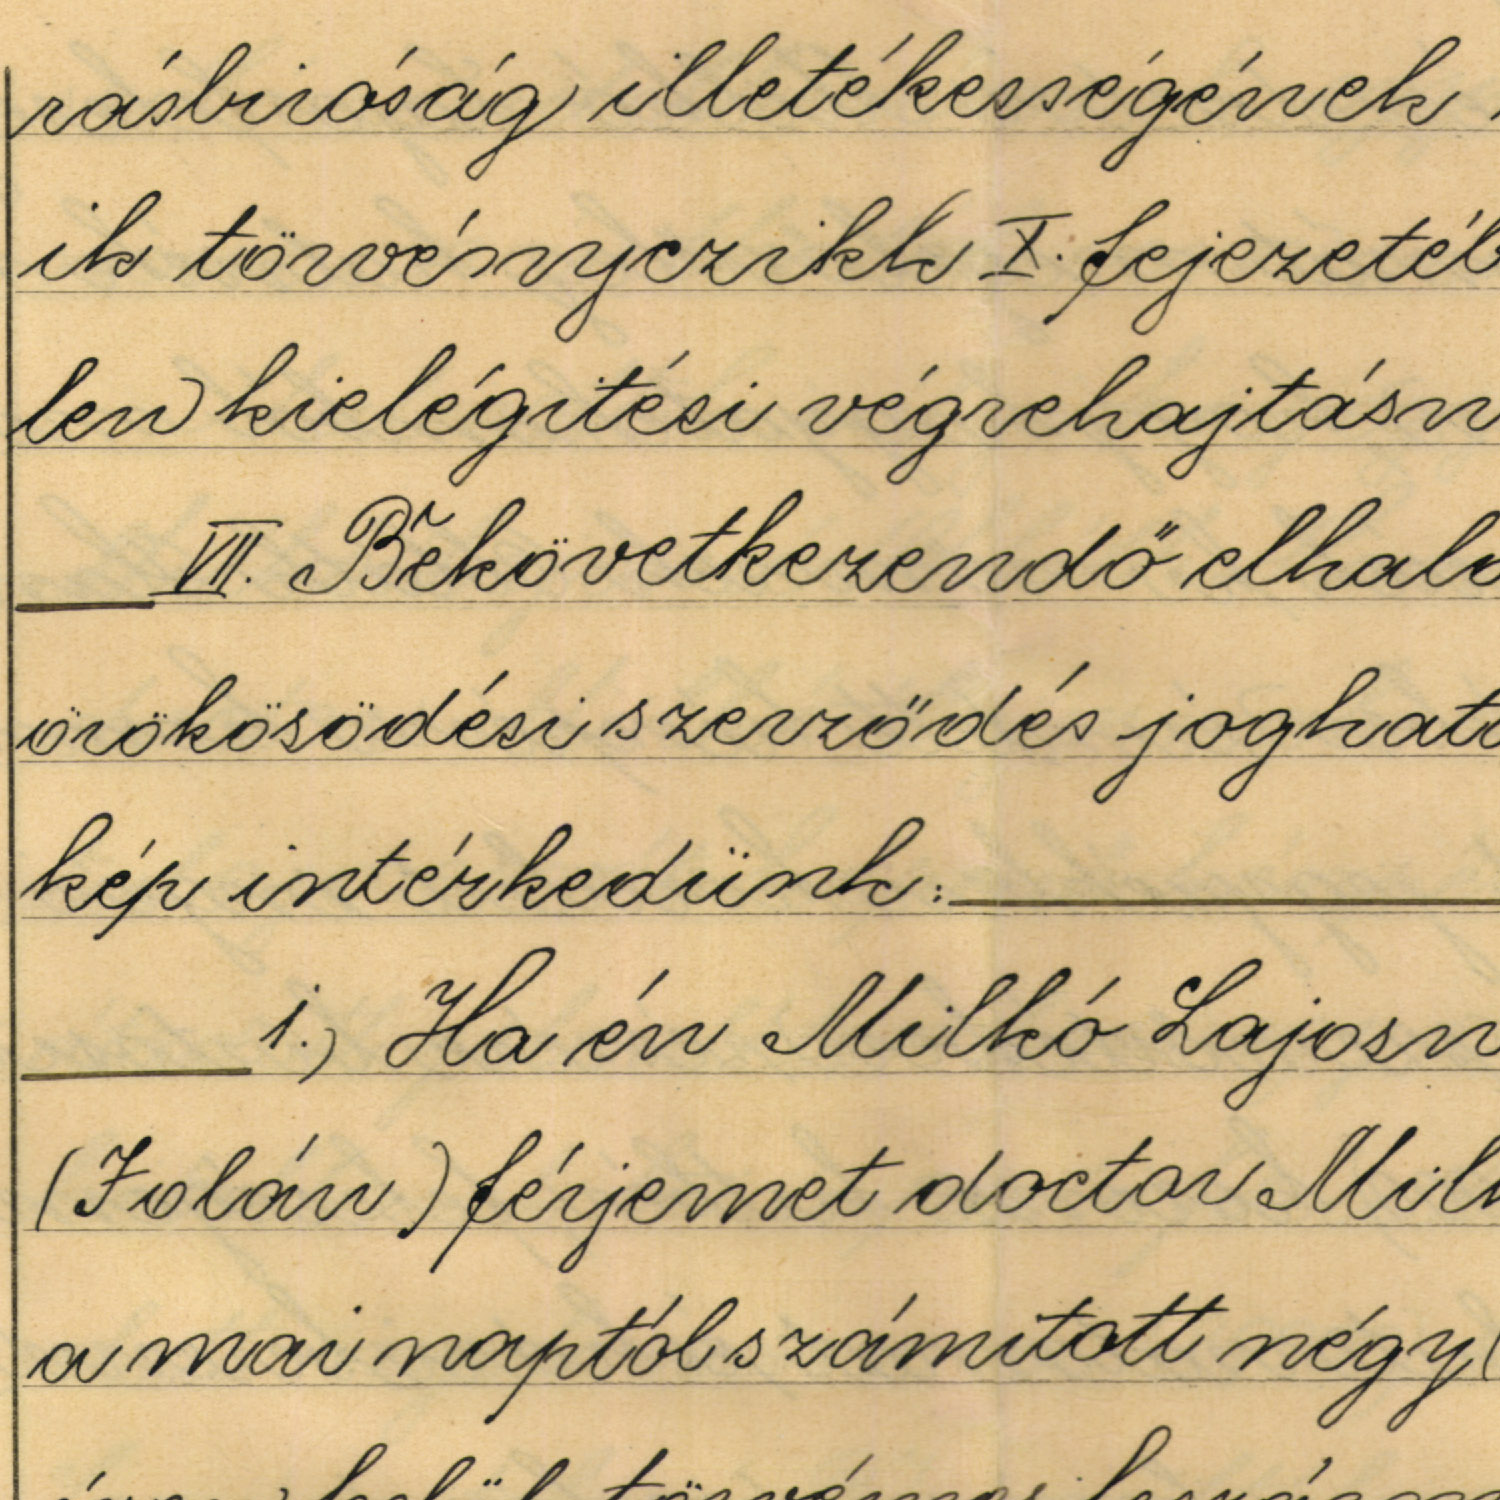 rásbiróság illetékességének
ik törvényczikk X. fejezetéb
len kielégitési végrehajtásn
VII. Bekövetkezendő elhalo
örökösödési szerződés joghatá
kép intérkedünk:
1.) Ha én Milkó Lajosn
(Jolán) férjemet doctor Milk
a mai naptól számitott négy (